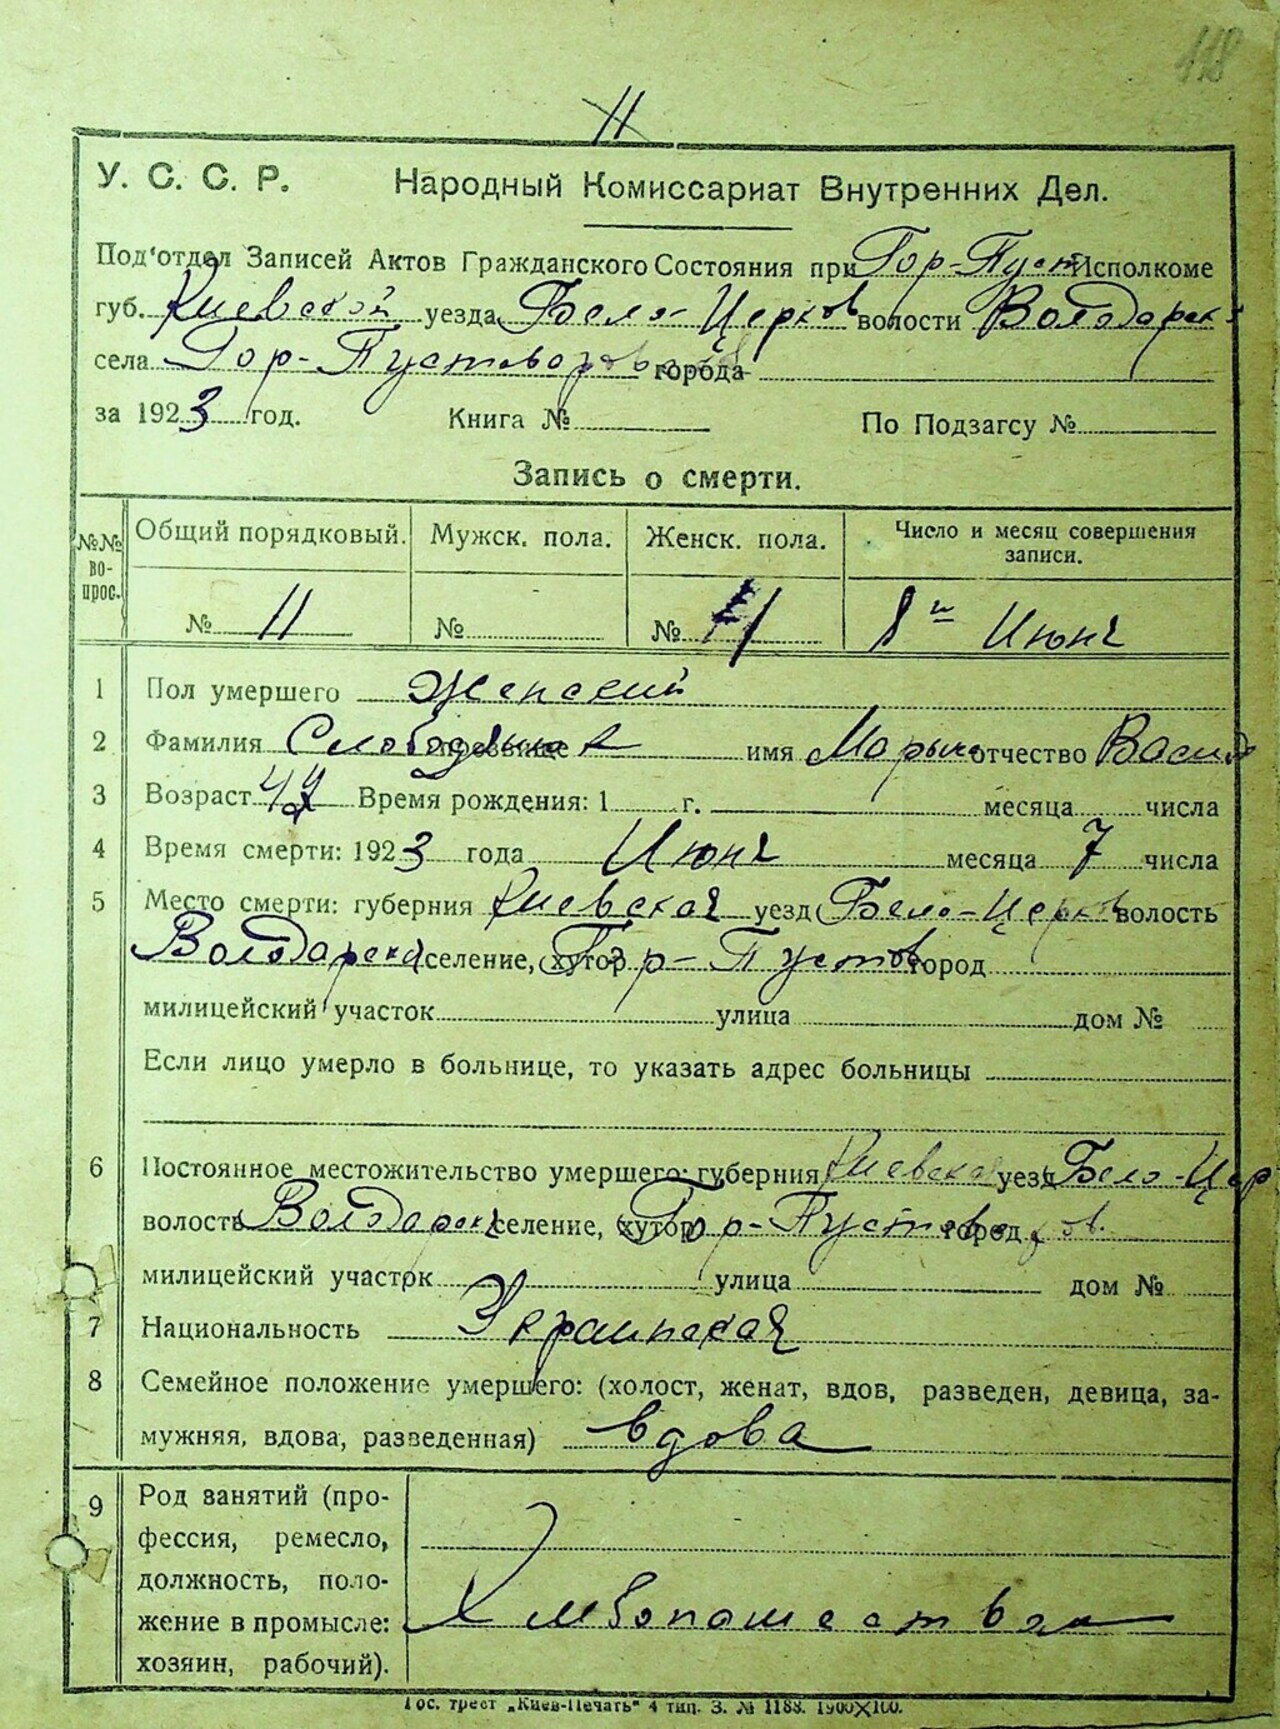 118
11
У. С. С. Р. Народный Комиссариат Внутренних Дел.
Под'отдел Записей Актов Гражданского Состояния при Гор-Пуст Исполкоме
губ. Киевской уезда Бело-Церков волости Володарск
села Гор-Пустоваров города
за 1923 год. Книга № По Подзагсу №
Запись о смерти.
№№ во-прос. Общий порядковый. Мужск. пола. Женск. пола. Число и месяц совершения записи.
№ 11 № № 8го Июня
1 Пол умершего Женский
2 Фамилия прозвище имя отчество Васил
3 Возраст Время рождения: 1 г. месяца числа
4 Время смерти: 1923 года Июня месяца 7 числа
5 Место смерти: губерния Киевская уезд Бело-Церков волость
Володарска селение, хутор Гор-Пустов город
милицейский участок улица дом №
Если лицо умерло в больнице, то указать адрес больницы
6 Постоянное местожительство умершего: губерния Киевская уезд Бело-Цер
волость Володарск селение, хутор Гор-Пустов город
милицейский участок улица дом №
7 Национальность Украинская
8 Семейное положение умершего: (холост, женат, вдов, разведен, девица, за-
мужняя, вдова, разведенная) вдова
9 Род занятий (про-
фессия, ремесло,
должность, поло-
жение в промысле:
хозяин, рабочий).
Гос. трест „Киев-Печать“ 4 тип. З. № 1188. 1900X100.